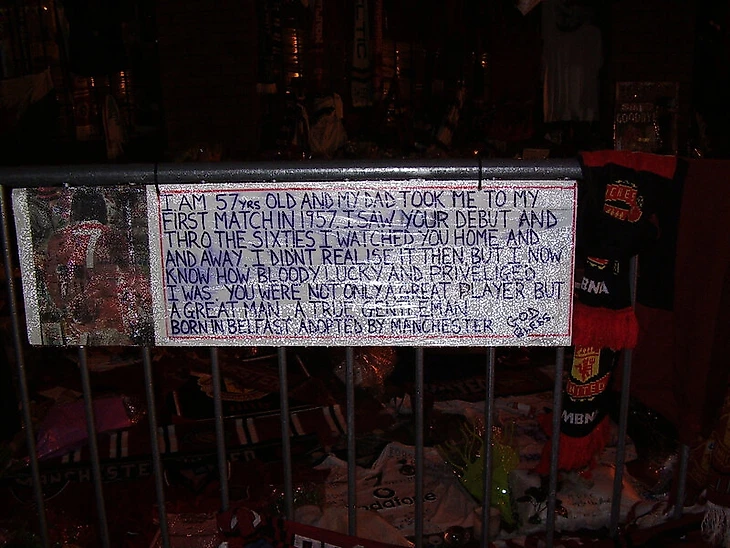 I AM 57YRS OLD AND MY DAD TOOK ME TO MY
FIRST MATCH IN 1957. I SAW YOUR DEBUT AND
THRO THE SIXTIES I WATCHED YOU HOME AND
AND AWAY. I DIDNT REALISE IT THEN BUT I NOW
KNOW HOW BLOODY LUCKY AND PRIVELIGED
I WAS. YOU WERE NOT ONLY A GREAT PLAYER BUT
A GREAT MAN. A TRUE GENTLEMAN
BORN IN BELFAST ADOPTED BY MANCHESTER
GOD
BLESS
MBNA
UNITED
MBNA
MANCHESTER
vodafone